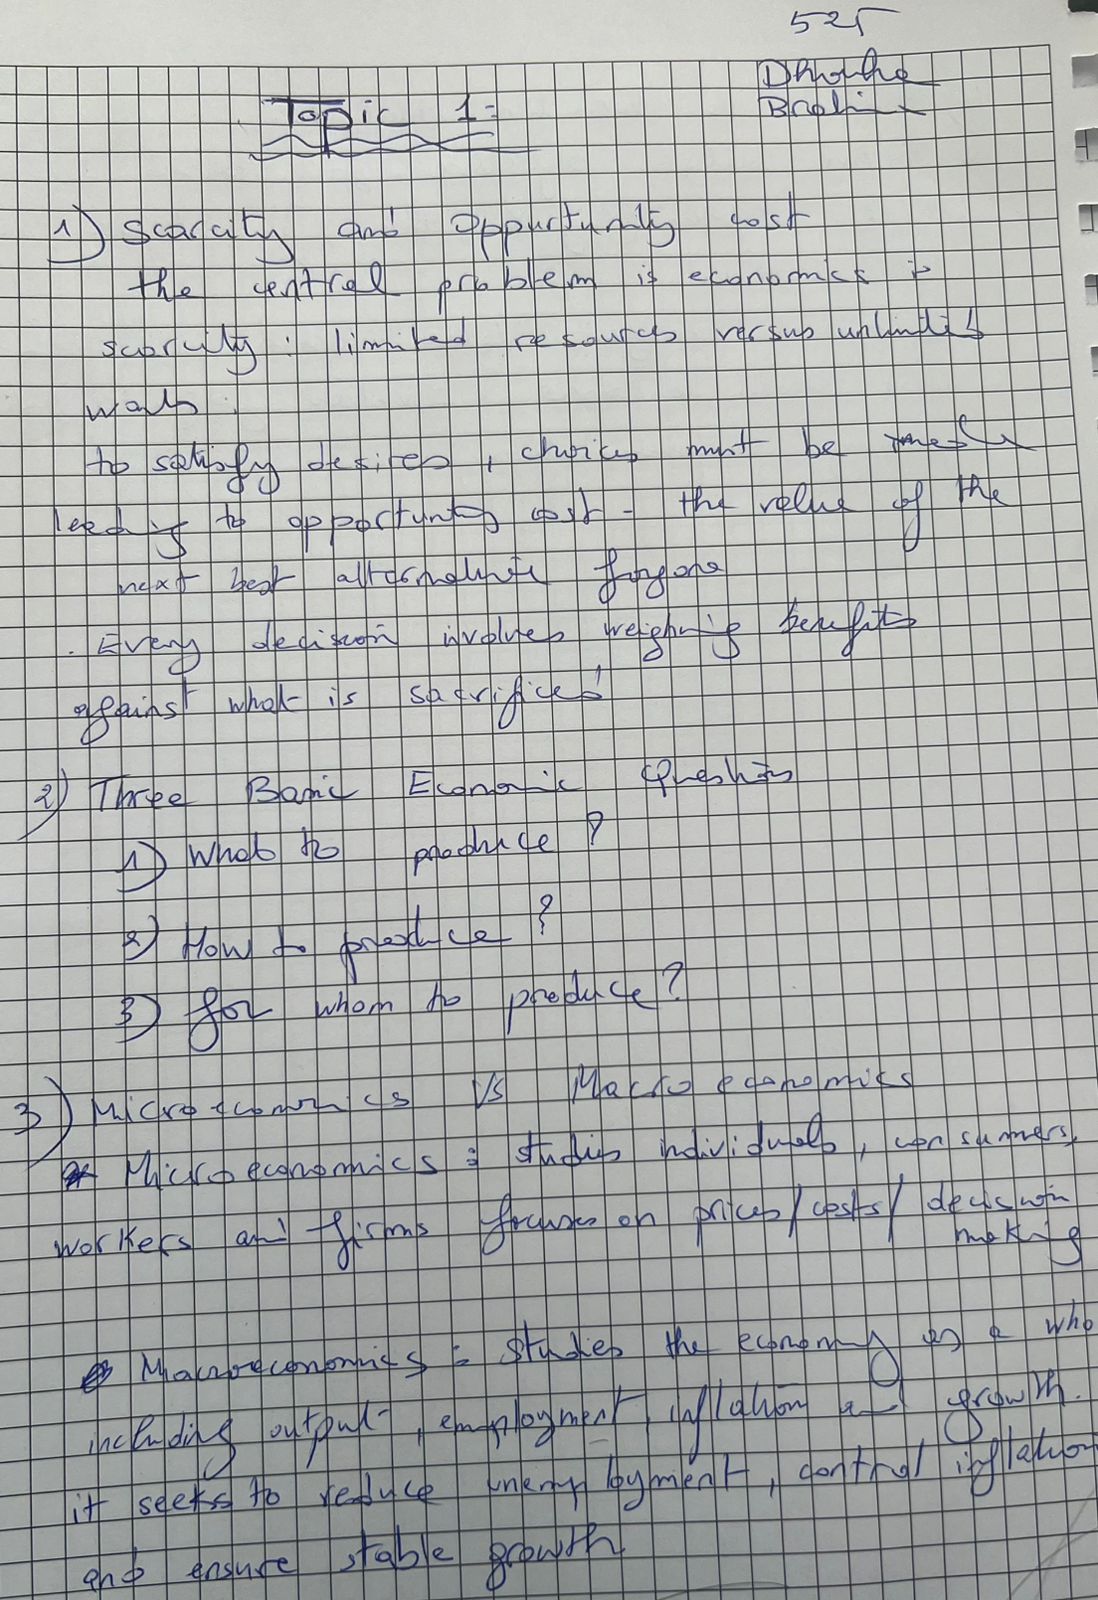 525
Topic 1:
1) Scarcity and Oppurtunity cost
the central problem is economics is
scarcity : limited resources versus unlimited
wants.
to satisfy desires, choices must be made
leading to opportunity cost - the value of the
next best alternative forgone
. Every decision involves weighing benefits
against what is sacrificed
2) Three Basic Economic Questions
1) What to produce ?
2) How to produce ?
3) for whom to produce ?
3) Microeconomics Vs Macroeconomics
Microeconomics : studies individuals, consumers,
workers and firms focuses on prices/costs/decision
making
Macroeconomics : studies the economy as a who
including output, employment, inflation and growth.
it seeks to reduce unemployment, control inflation
and ensure stable growth